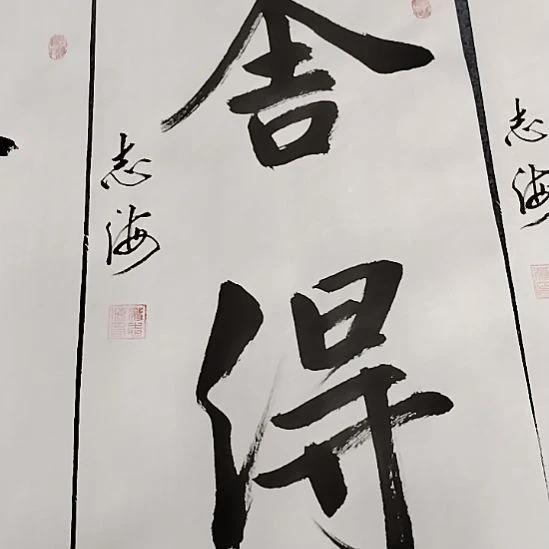 舍得
志海
志海